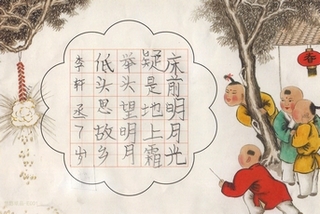 床前明月光
疑是地上霜
举头望明月
低头思故乡
李轩丞7岁
春